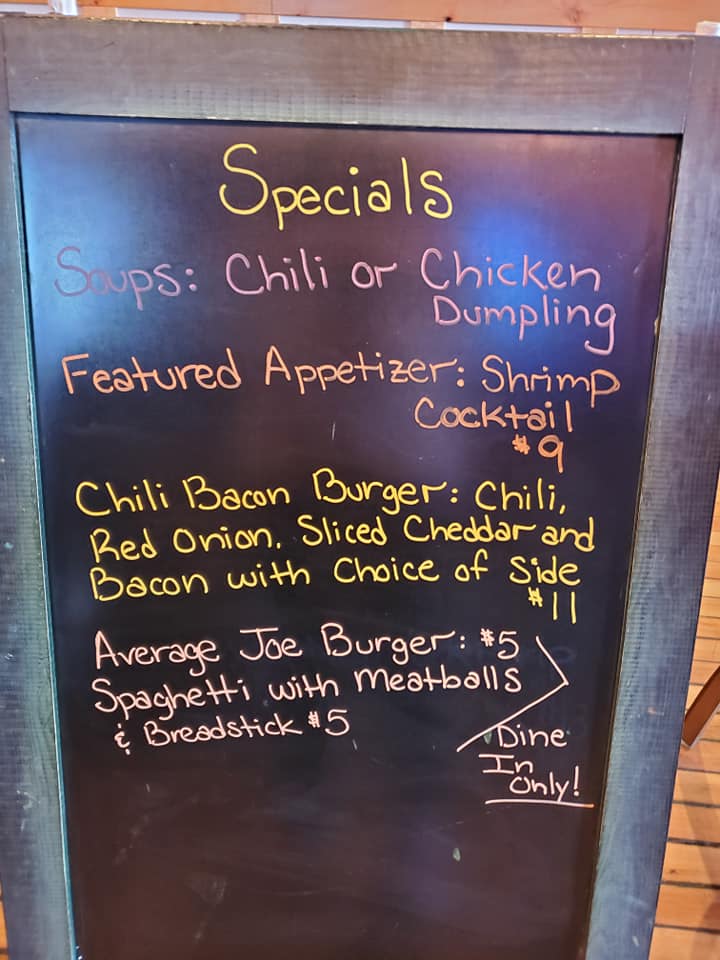 Specials
Soups: Chili or Chicken
Dumpling
Featured Appetizer: Shrimp
Cocktail
$9
Chili Bacon Burger: Chili,
Red Onion, Sliced Cheddar and
Bacon with Choice of Side
$11
Average Joe Burger: $5
Spaghetti with Meatballs
& Breadstick $5
Dine
In
Only!